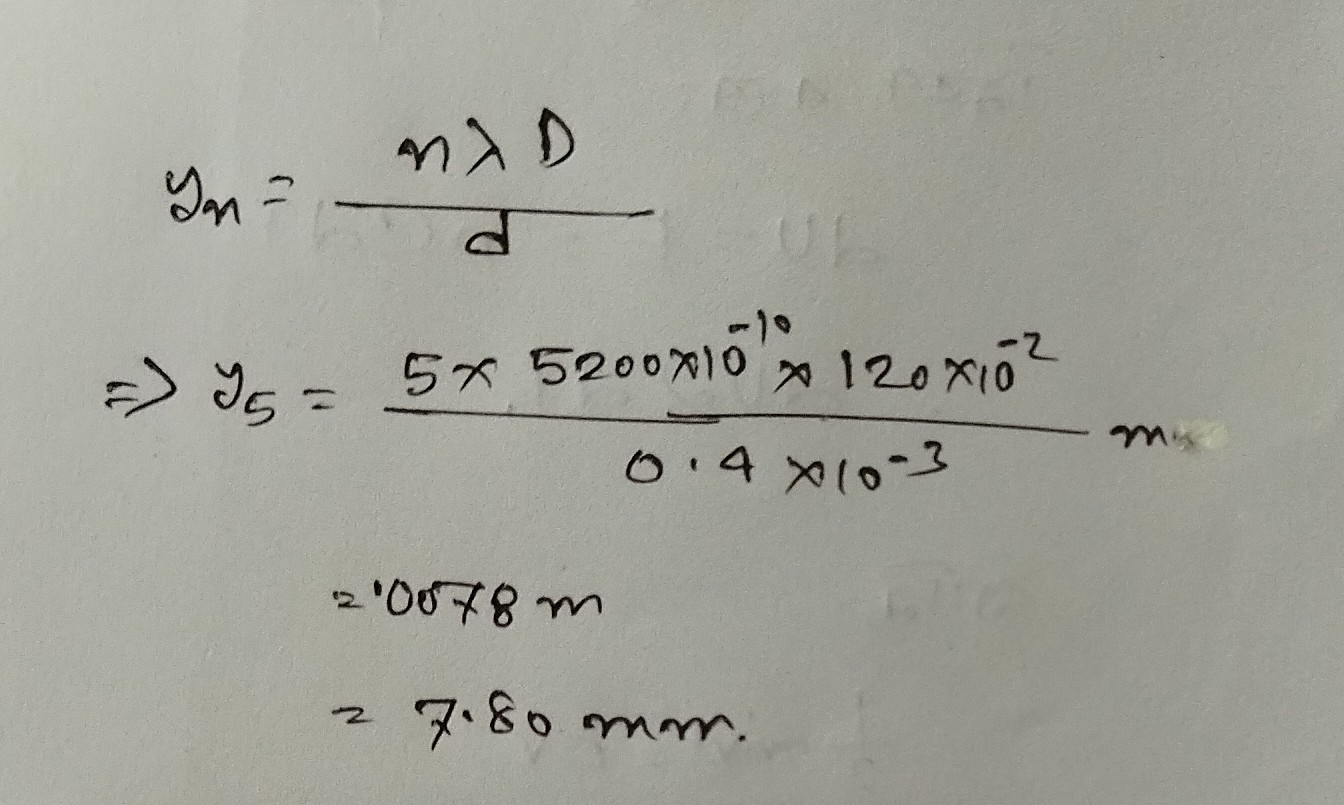 yn = nλD / d
=> y5 = 5 x 5200x10^-10 x 120x10^-2 / 0.4 x10^-3 m
= .0078 m
= 7.80 mm.